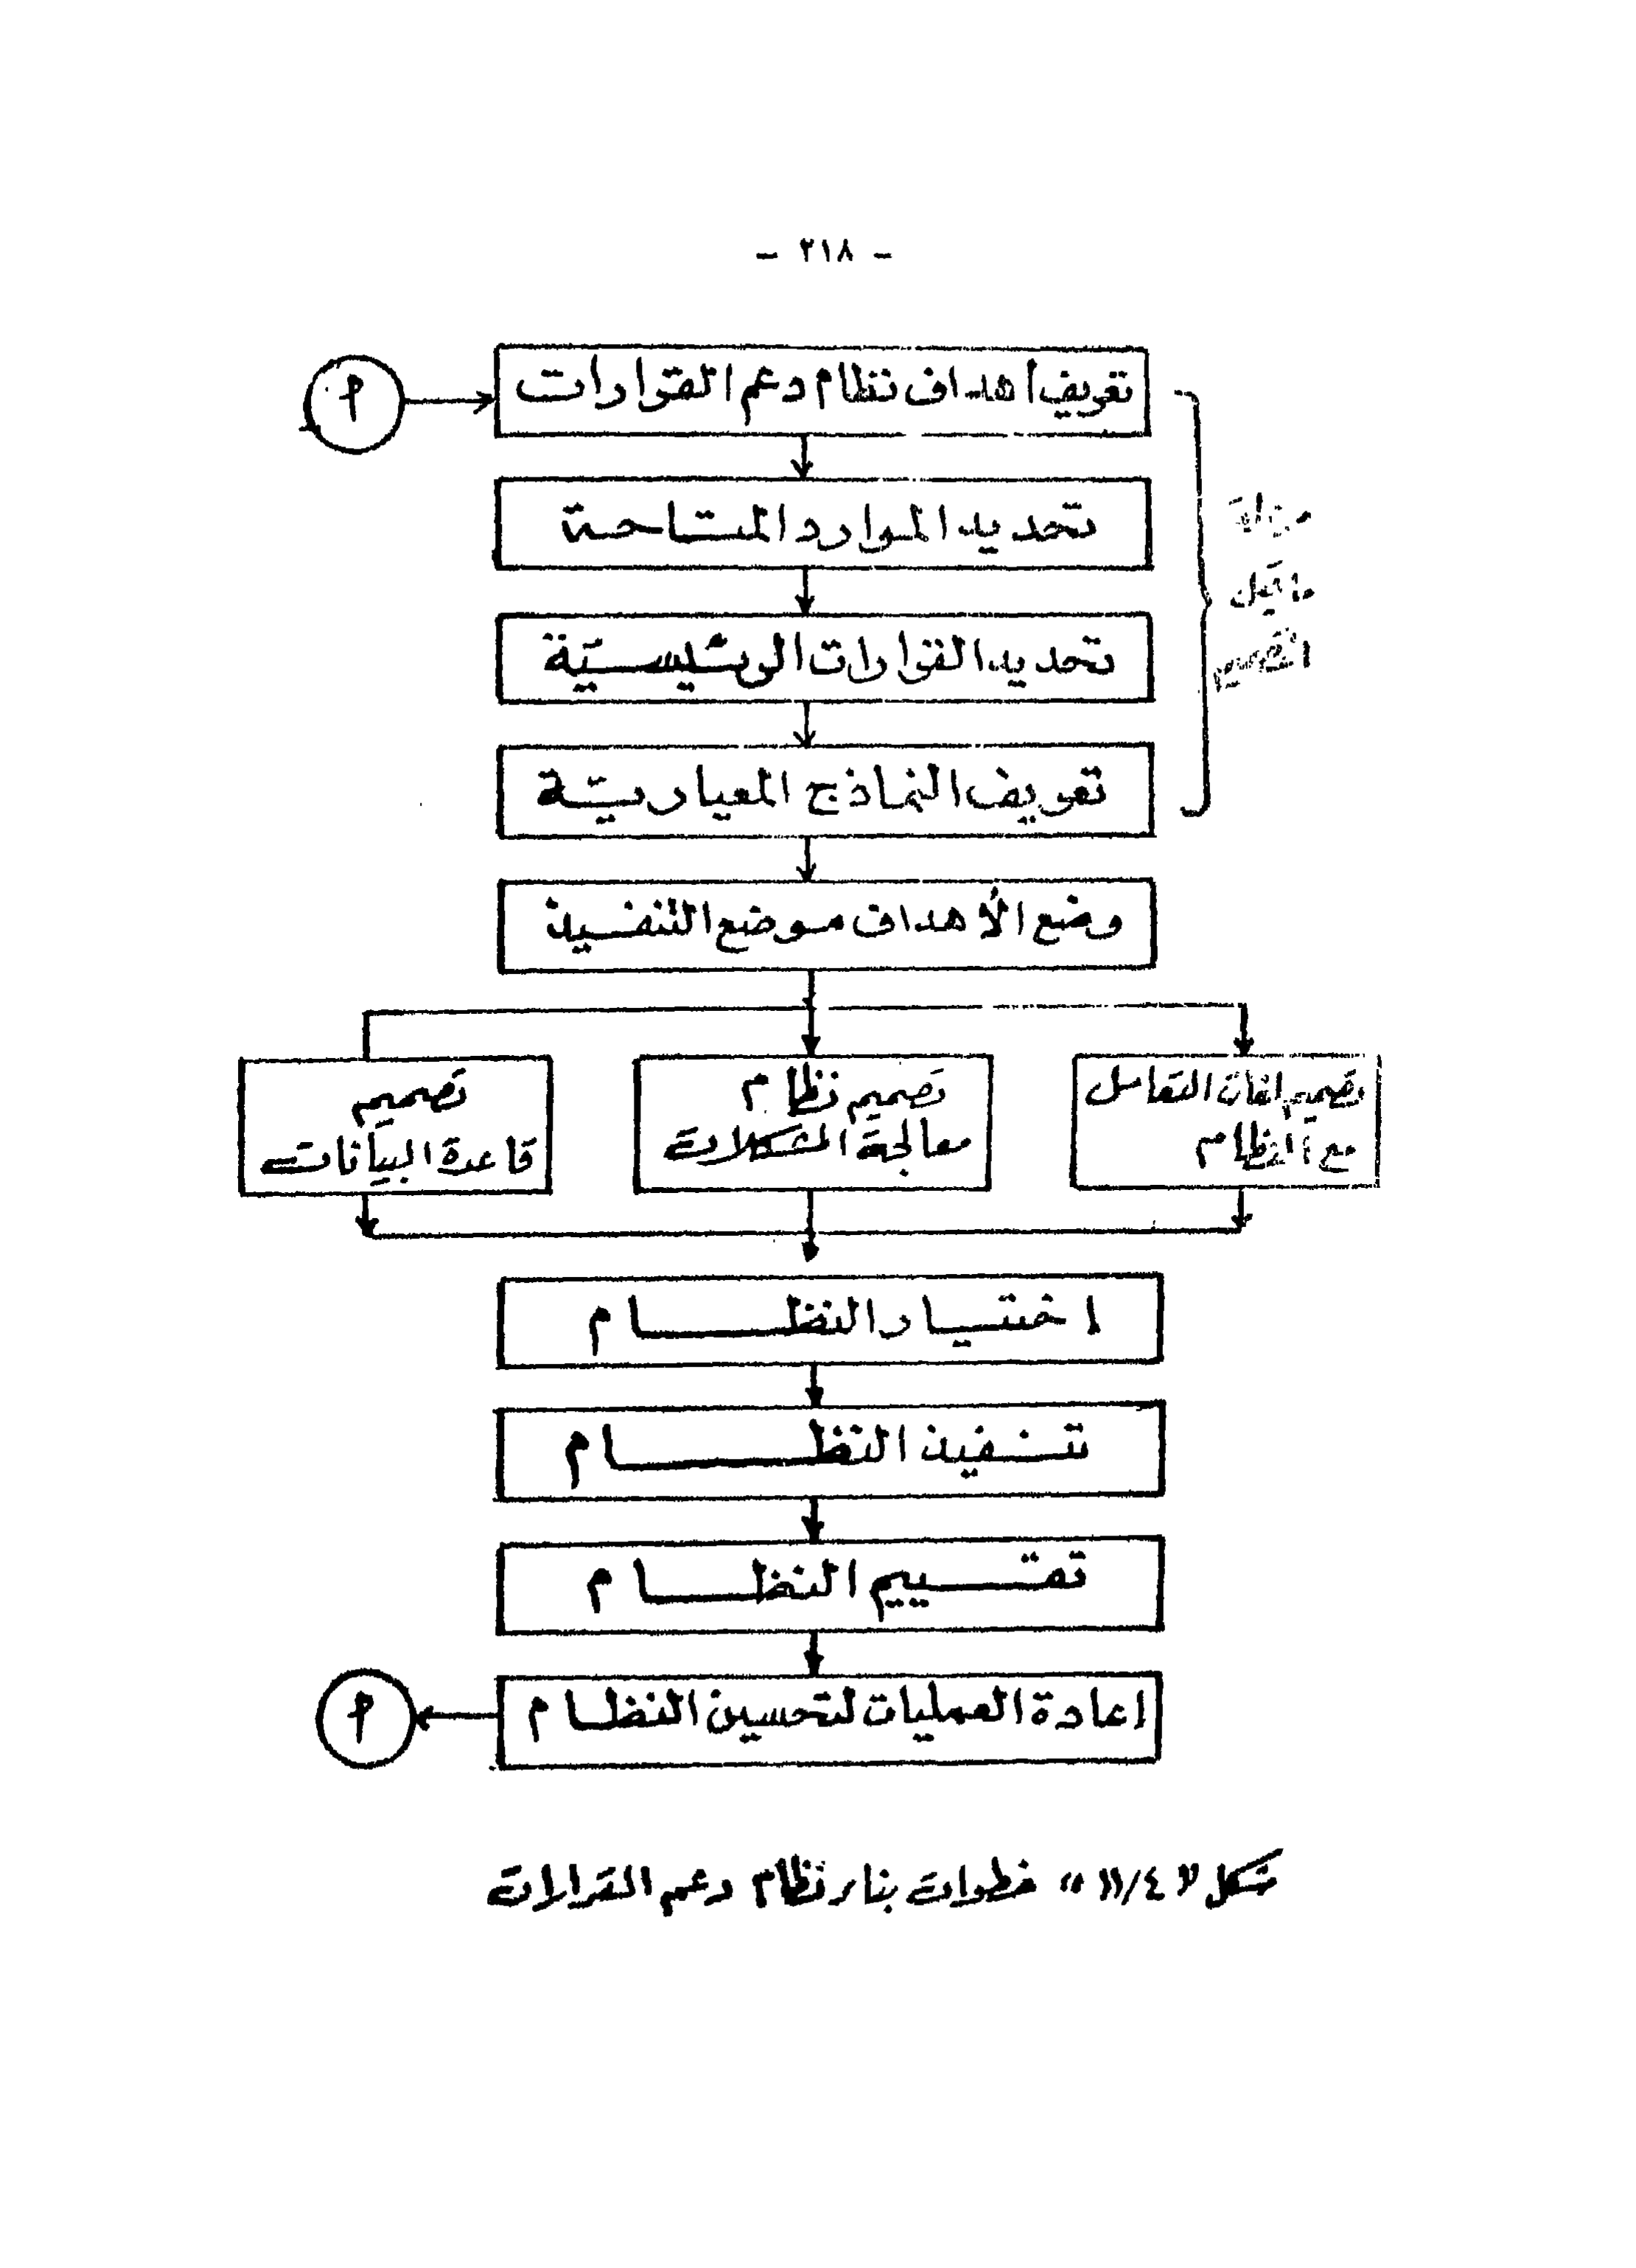 - ٢١٨ -
تعريف أهداف نظام دعم القرارات
م
تحديد الموارد المتاحة
مرحلة
ما قبل
التصميم
تحديد القرارات الرئيسيّة
تعريف النماذج المعياريّة
وضع الأهداف موضع التنفيذ
تصميم لغات التعامل
مع النظام
تصميم نظام
معالجة المشكلات
تصميم
قاعدة البيانات
اختيار النظام
تنفيذ النظام
تقييم النظام
إعادة العمليات لتحسين النظام
م
شكل "٤/١١" خطوات بناء نظام دعم القرارات